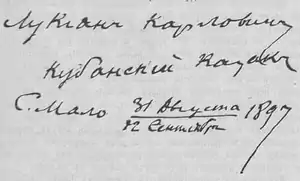 Лукіанъ Карловичъ
Кубанскій Казакъ
С. Мало 31 Августа 1897
12 Сентября